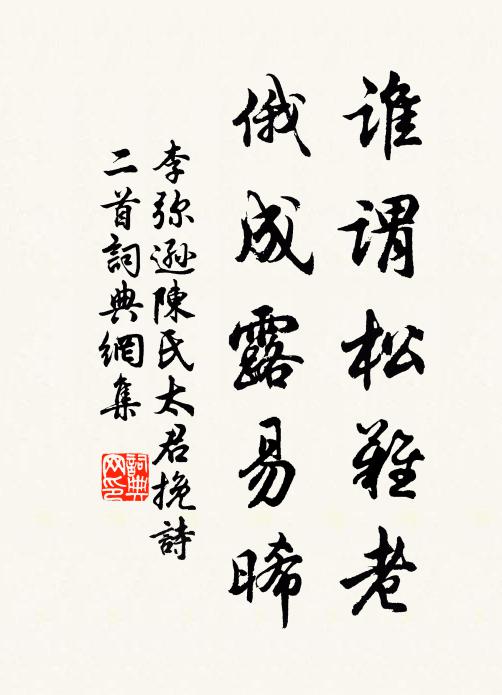 谁谓松难老
俄成露易晞
李弥逊陳氏太君挽詩
二首詞典網集
詞典
网印